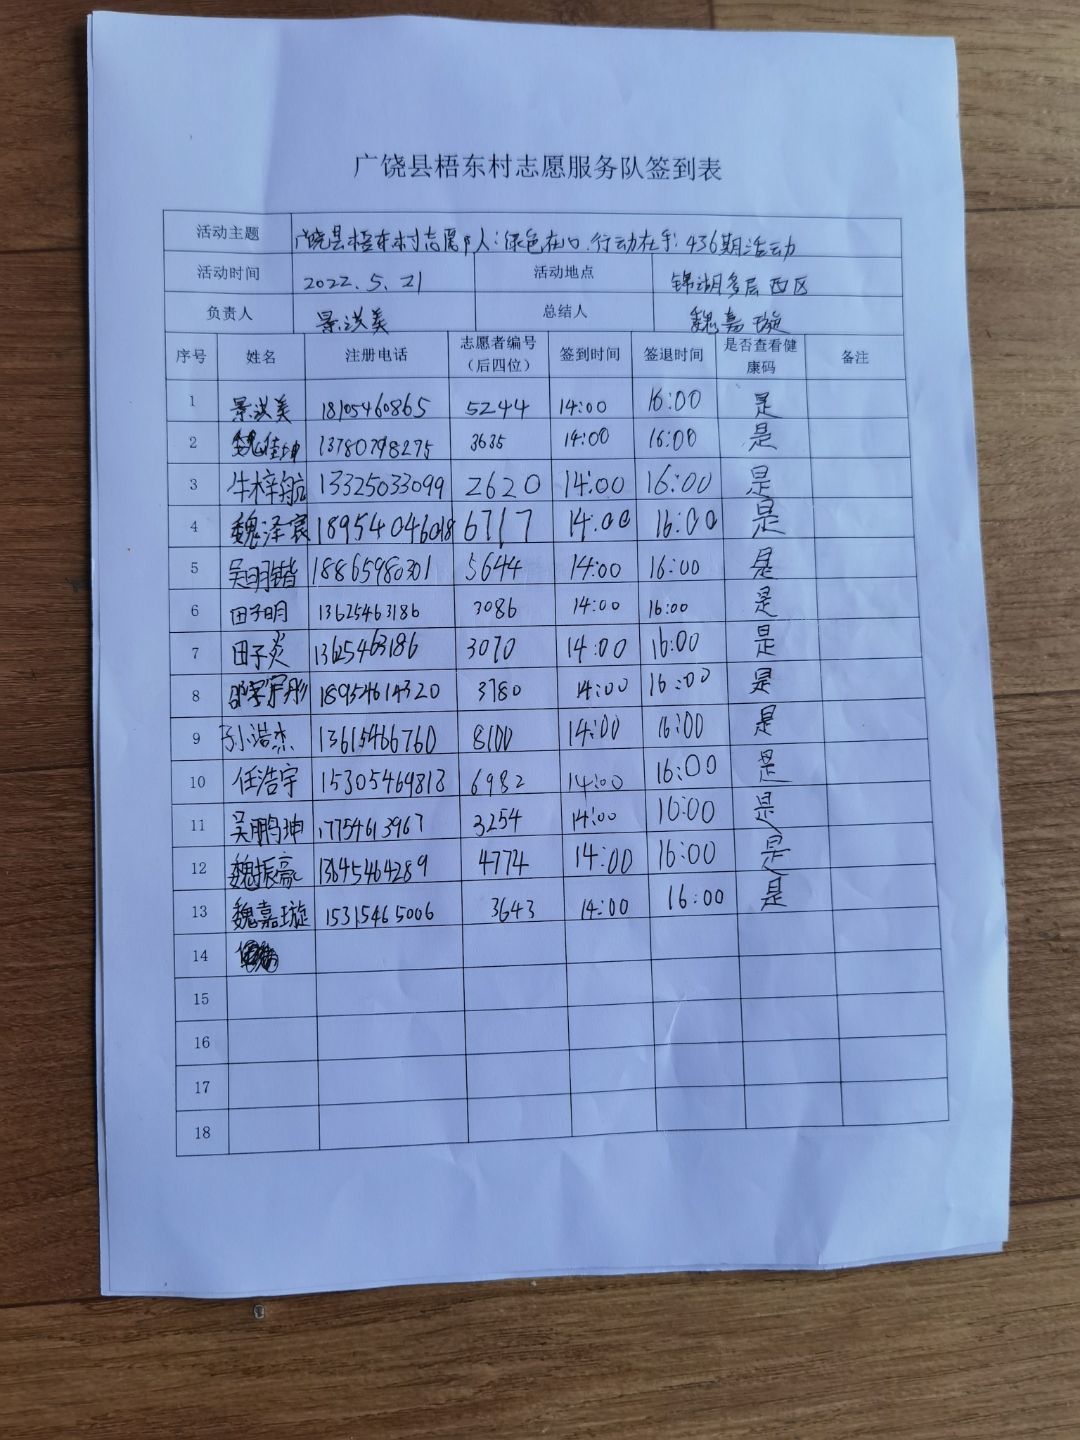 广饶县梧东村志愿服务队签到表
活动主题 广饶县梧东村志愿 人:绿色在心.行动在手.436期活动
活动时间 2022.5.21 活动地点 锦湖多层西区
负责人 景洪美 总结人 魏嘉璇
序号 姓名 注册电话 志愿者编号（后四位） 签到时间 签退时间 是否查看健康码 备注
1 景洪美 18105460865 5244 14:00 16:00 是
2 魏佳坤 13780798275 3635 14:00 16:00 是
3 牛梓航 13325033099 2620 14:00 16:00 是
4 魏泽宸 18954046018 6717 14:00 16:00 是
5 吴明锴 18865980301 5644 14:00 16:00 是
6 田子明 13625463186 3086 14:00 16:00 是
7 田子炎 13625463186 3070 14:00 16:00 是
8 18954614320 3780 14:00 16:00 是
9 孙浩杰 13615466760 8100 14:00 16:00 是
10 任浩宇 15305469813 6982 14:00 16:00 是
11 吴鹏坤 17754613967 3254 14:00 16:00 是
12 魏振豪 13645464289 4774 14:00 16:00 是
13 魏嘉璇 15315465006 3643 14:00 16:00 是
14
15
16
17
18